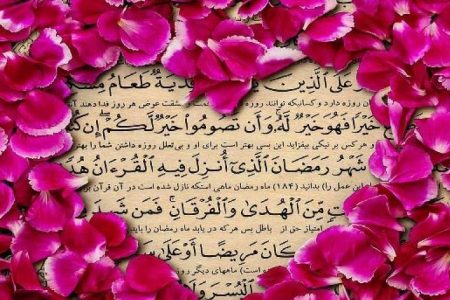 عَلَى الَّذِينَ يُ دْيَةٌ طَعَامُ مِسْ
روزه دارد و کسانیکه توانند روزه مشقت عوض هر روز فدا دهند
خَيْرًا فَهُوَ خَيْرٌ لَّهُ وَأَن تَصُومُوا خَيْرٌ لَّكُمْ إِن كُ
و هر کس بر نیکی بیفزاید این سی بهتر است برای او و بی‌تعلل روزه داشتن شما را بهتر
شَهْرُ رَمَضَانَ الَّذِي أُنزِلَ فِيهِ الْقُرْءَانُ هُدً
این عمل را) بدانید (۱۸۴) ماه رمضان ماهی استکه نازل شده است در آن قرآن
تٍ مِّنَ الْهُدَى وَالْفُرْقَانِ فَمَن شَهِدَ
امتیاز حق از باطل پس هر که دریابد ماه رمضان را باید
كَانَ مَرِيضًا أَوْ عَلَى سَ
است) ماههای دیگر روز
الْيُسْرَ وَلَا